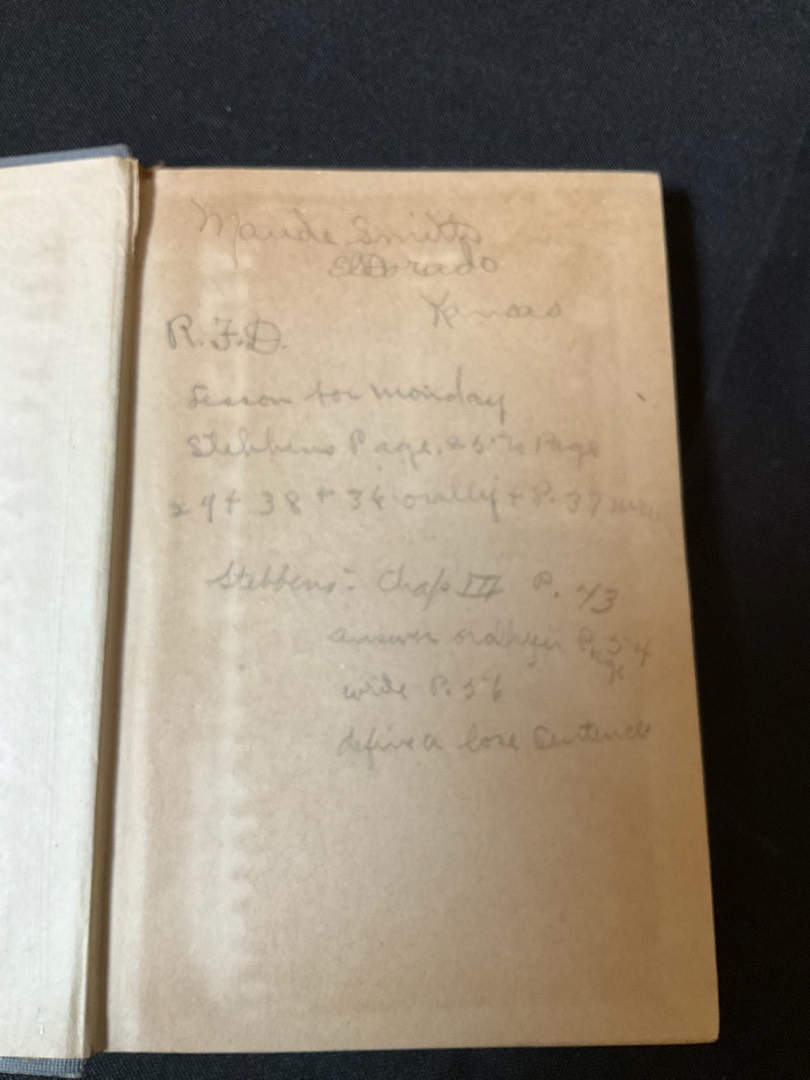 Maude Smith
ElDorado
Kansas
R.F.D.
Lesson for Monday
Stebbens Page, 25 to Page
29 + 38 + 36 orally + P. 37
Stebbens:- Chap III P. 43
answer orally in Page 54
write P. 56
define a lose Sentence